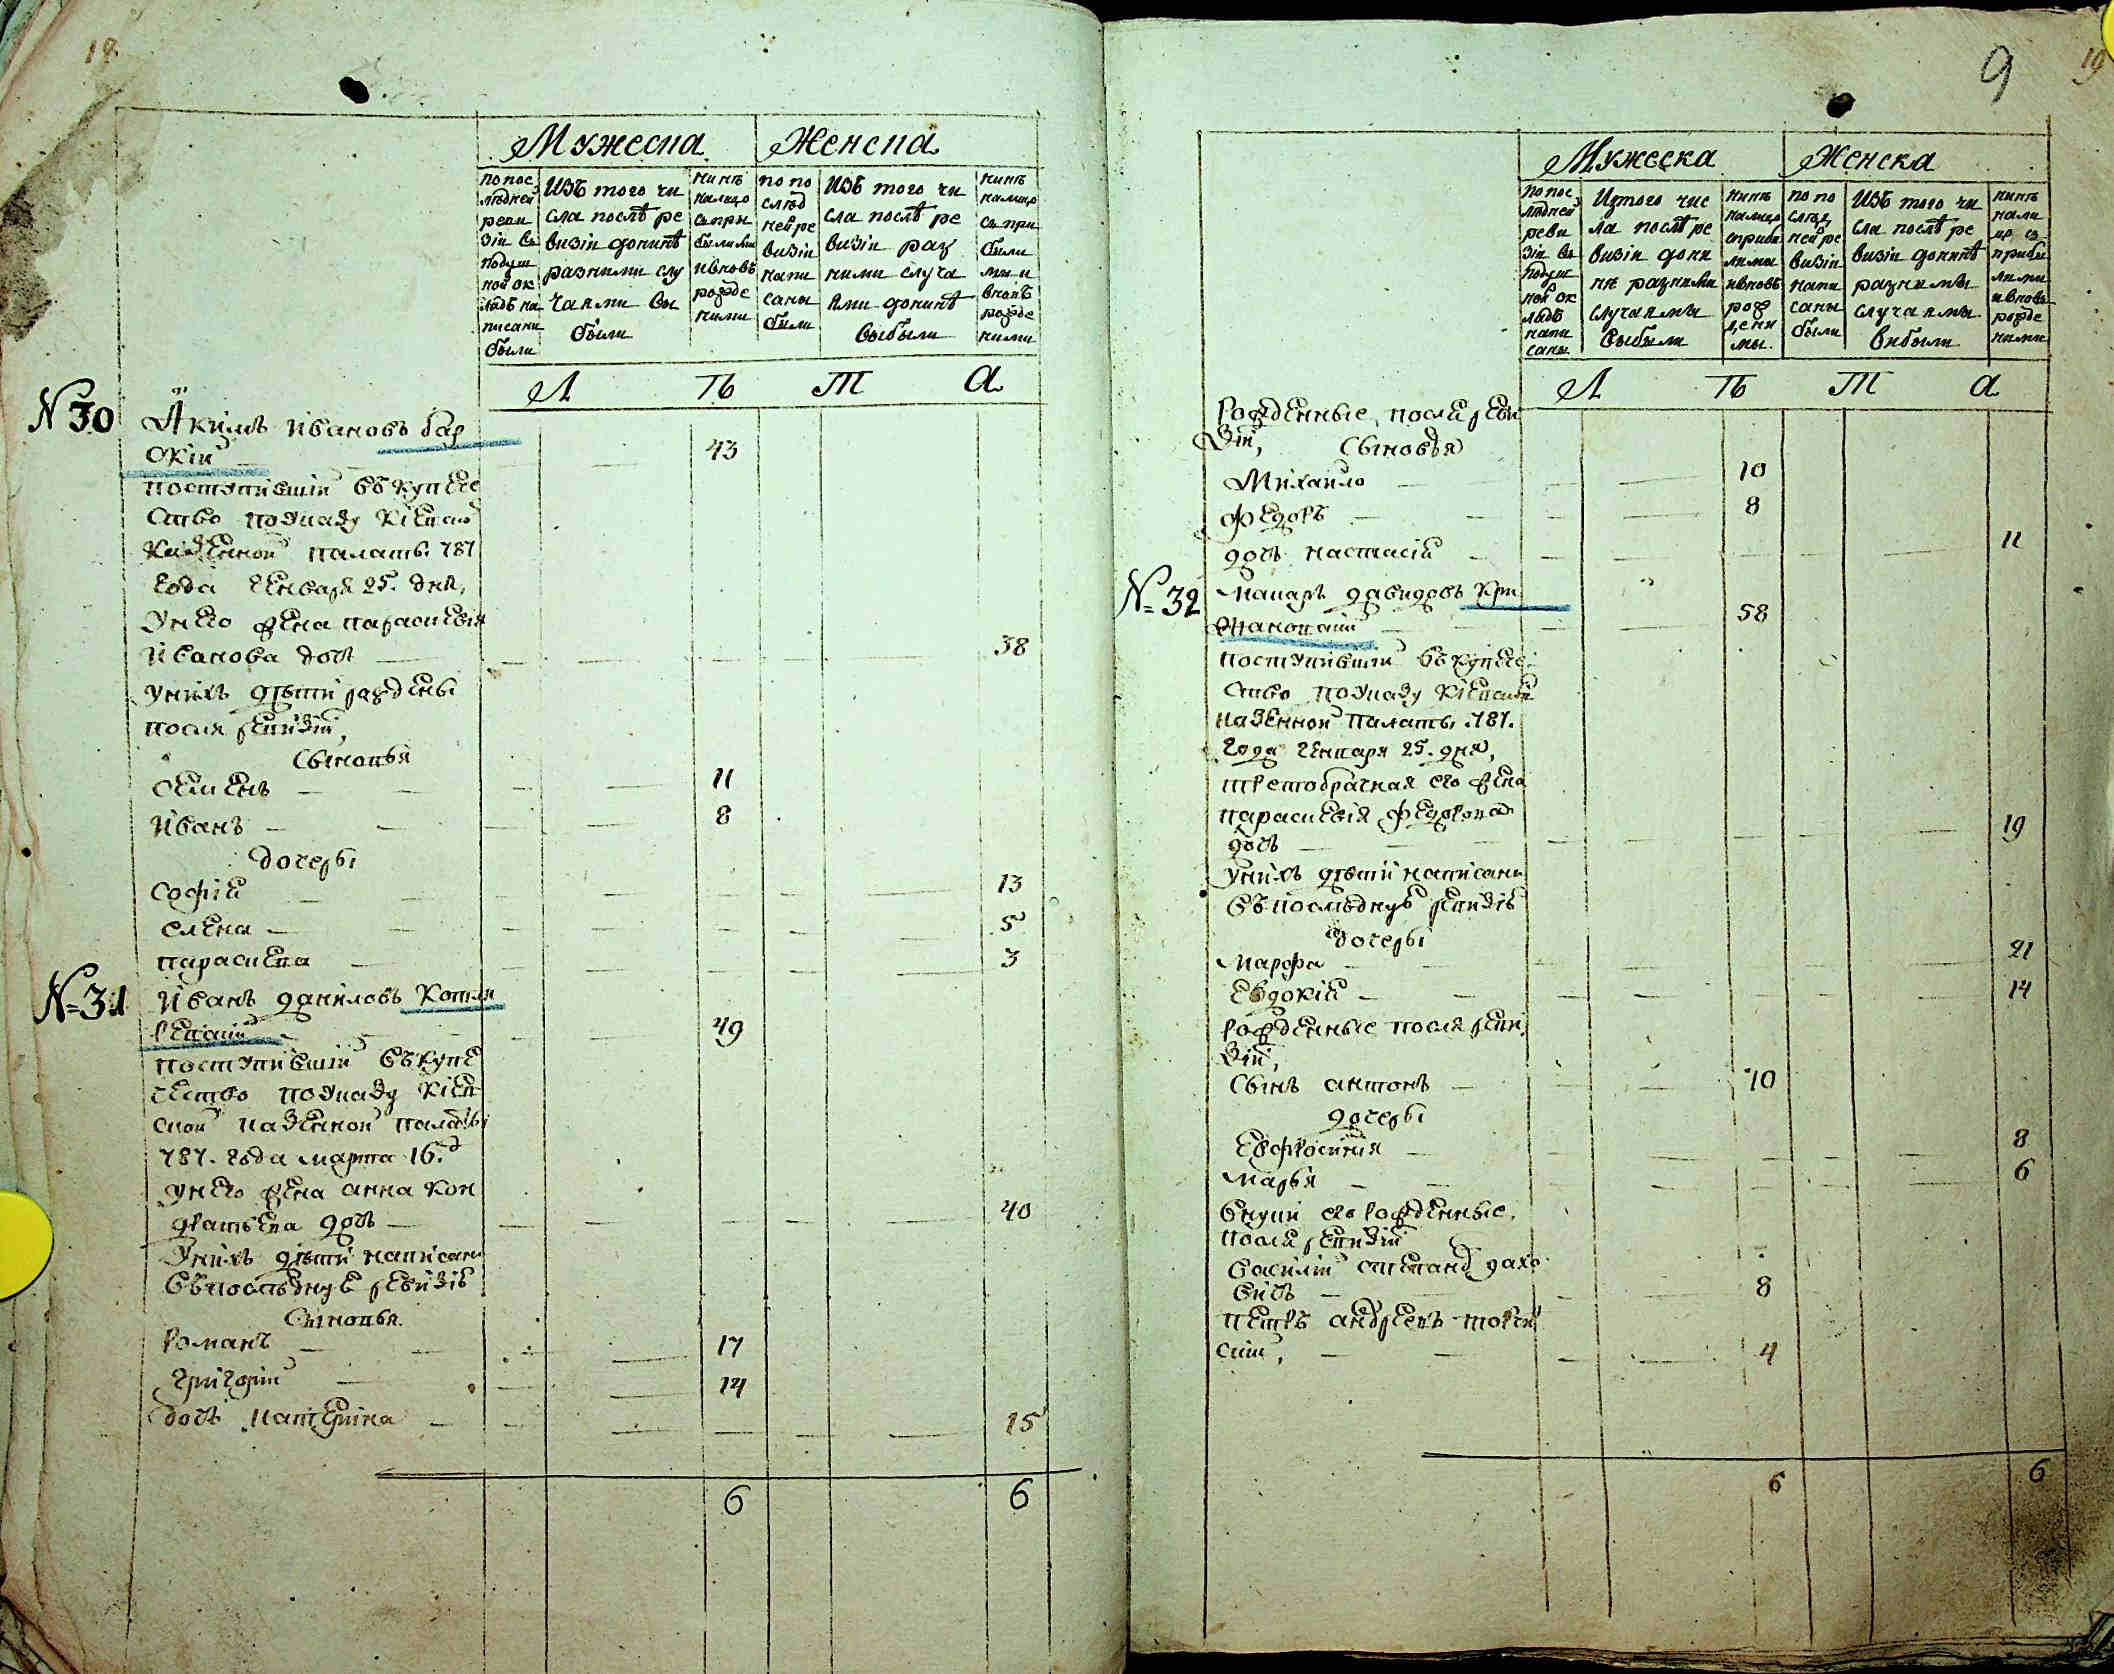 18
Мужеска Женска
по пос
лѣдней
реви
зіи въ
подуш
ной ок
ладъ на
писани
были
Изъ того чи
сла послѣ ре
визіи донинѣ
разними слу
чаями вы
были
нинѣ
налицо
съ при
былими
ивновь
рожде
ними
по по
слѣд
ней ре
визіи
напи
саны
были
Изъ того чи
сла послѣ ре
визіи раз
ними случа
ями донинѣ
выбыли
нинѣ
налицо
съ при
были
ми и
вновь
рожде
ними
Л Ѣ Т А
№ 30 Якимъ Ивановъ бар
скій 43
поступившій въ купече
ство по указу Кіевской
казенной палаты 787
года генваря 25. дня,
у него жена параскевія
Иванова дочь 38
у нихъ дѣти рождены
после ревизіи,
сыновья
семенъ 11
Иванъ 8
дочеры
софія 13
елена 5
параскева 3
№ 31 Иванъ даниловъ Котля
ревскій 49
поступившій въ купе
чество по указу Кіев
ской казенной палаты
787. года марта 16. д
у него жена анна кон
дратьева дочь 40
У нихъ дѣти написани
въ последнуе ревизіе
сыновья
романъ 17
григорій 14
дочь катерина 15
6 6
9
19
Мужеска Женска
по пос
лѣдней
реви
зіи въ
подуш
ной ок
ладъ
напи
саны
Изтого чис
ла послѣ ре
визіи дони
нѣ разними
случаямы
выбыли
нинѣ
налицо
сприбы
лимы
ивновъ
рож
дени
мы.
по по
слѣд
ней ре
визіи
напи
саны
были
Изъ того чи
сла послѣ ре
визіи донинѣ
разнимы
случаямы
вибыли
нинѣ
нали
цо съ
прибы
лими
ивновь
рожде
ними
Л Ѣ Т А
рожденные после реви
зіи, сыновья
Михайло 10
федоръ 8
дочь настасія 11
№ 32 Макаръ давидовъ Кри
жановскій 58
поступивши въ купече
ство по указу Кіевской
казенной палаты 787.
года генваря 25. дня,
третобрачная его жена
параскевія федорова
дочь 19
у нихъ дѣти написани
въ последнуе ревизіе
дочеры
марфа 21
евдокія 14
рожденные после реви
зіи,
сынъ антонъ 10
дочеры
Евфросинія 8
марья 6
внуки его рожденные
после ревизіи
василій
8
петръ андреевъ
4
6 6